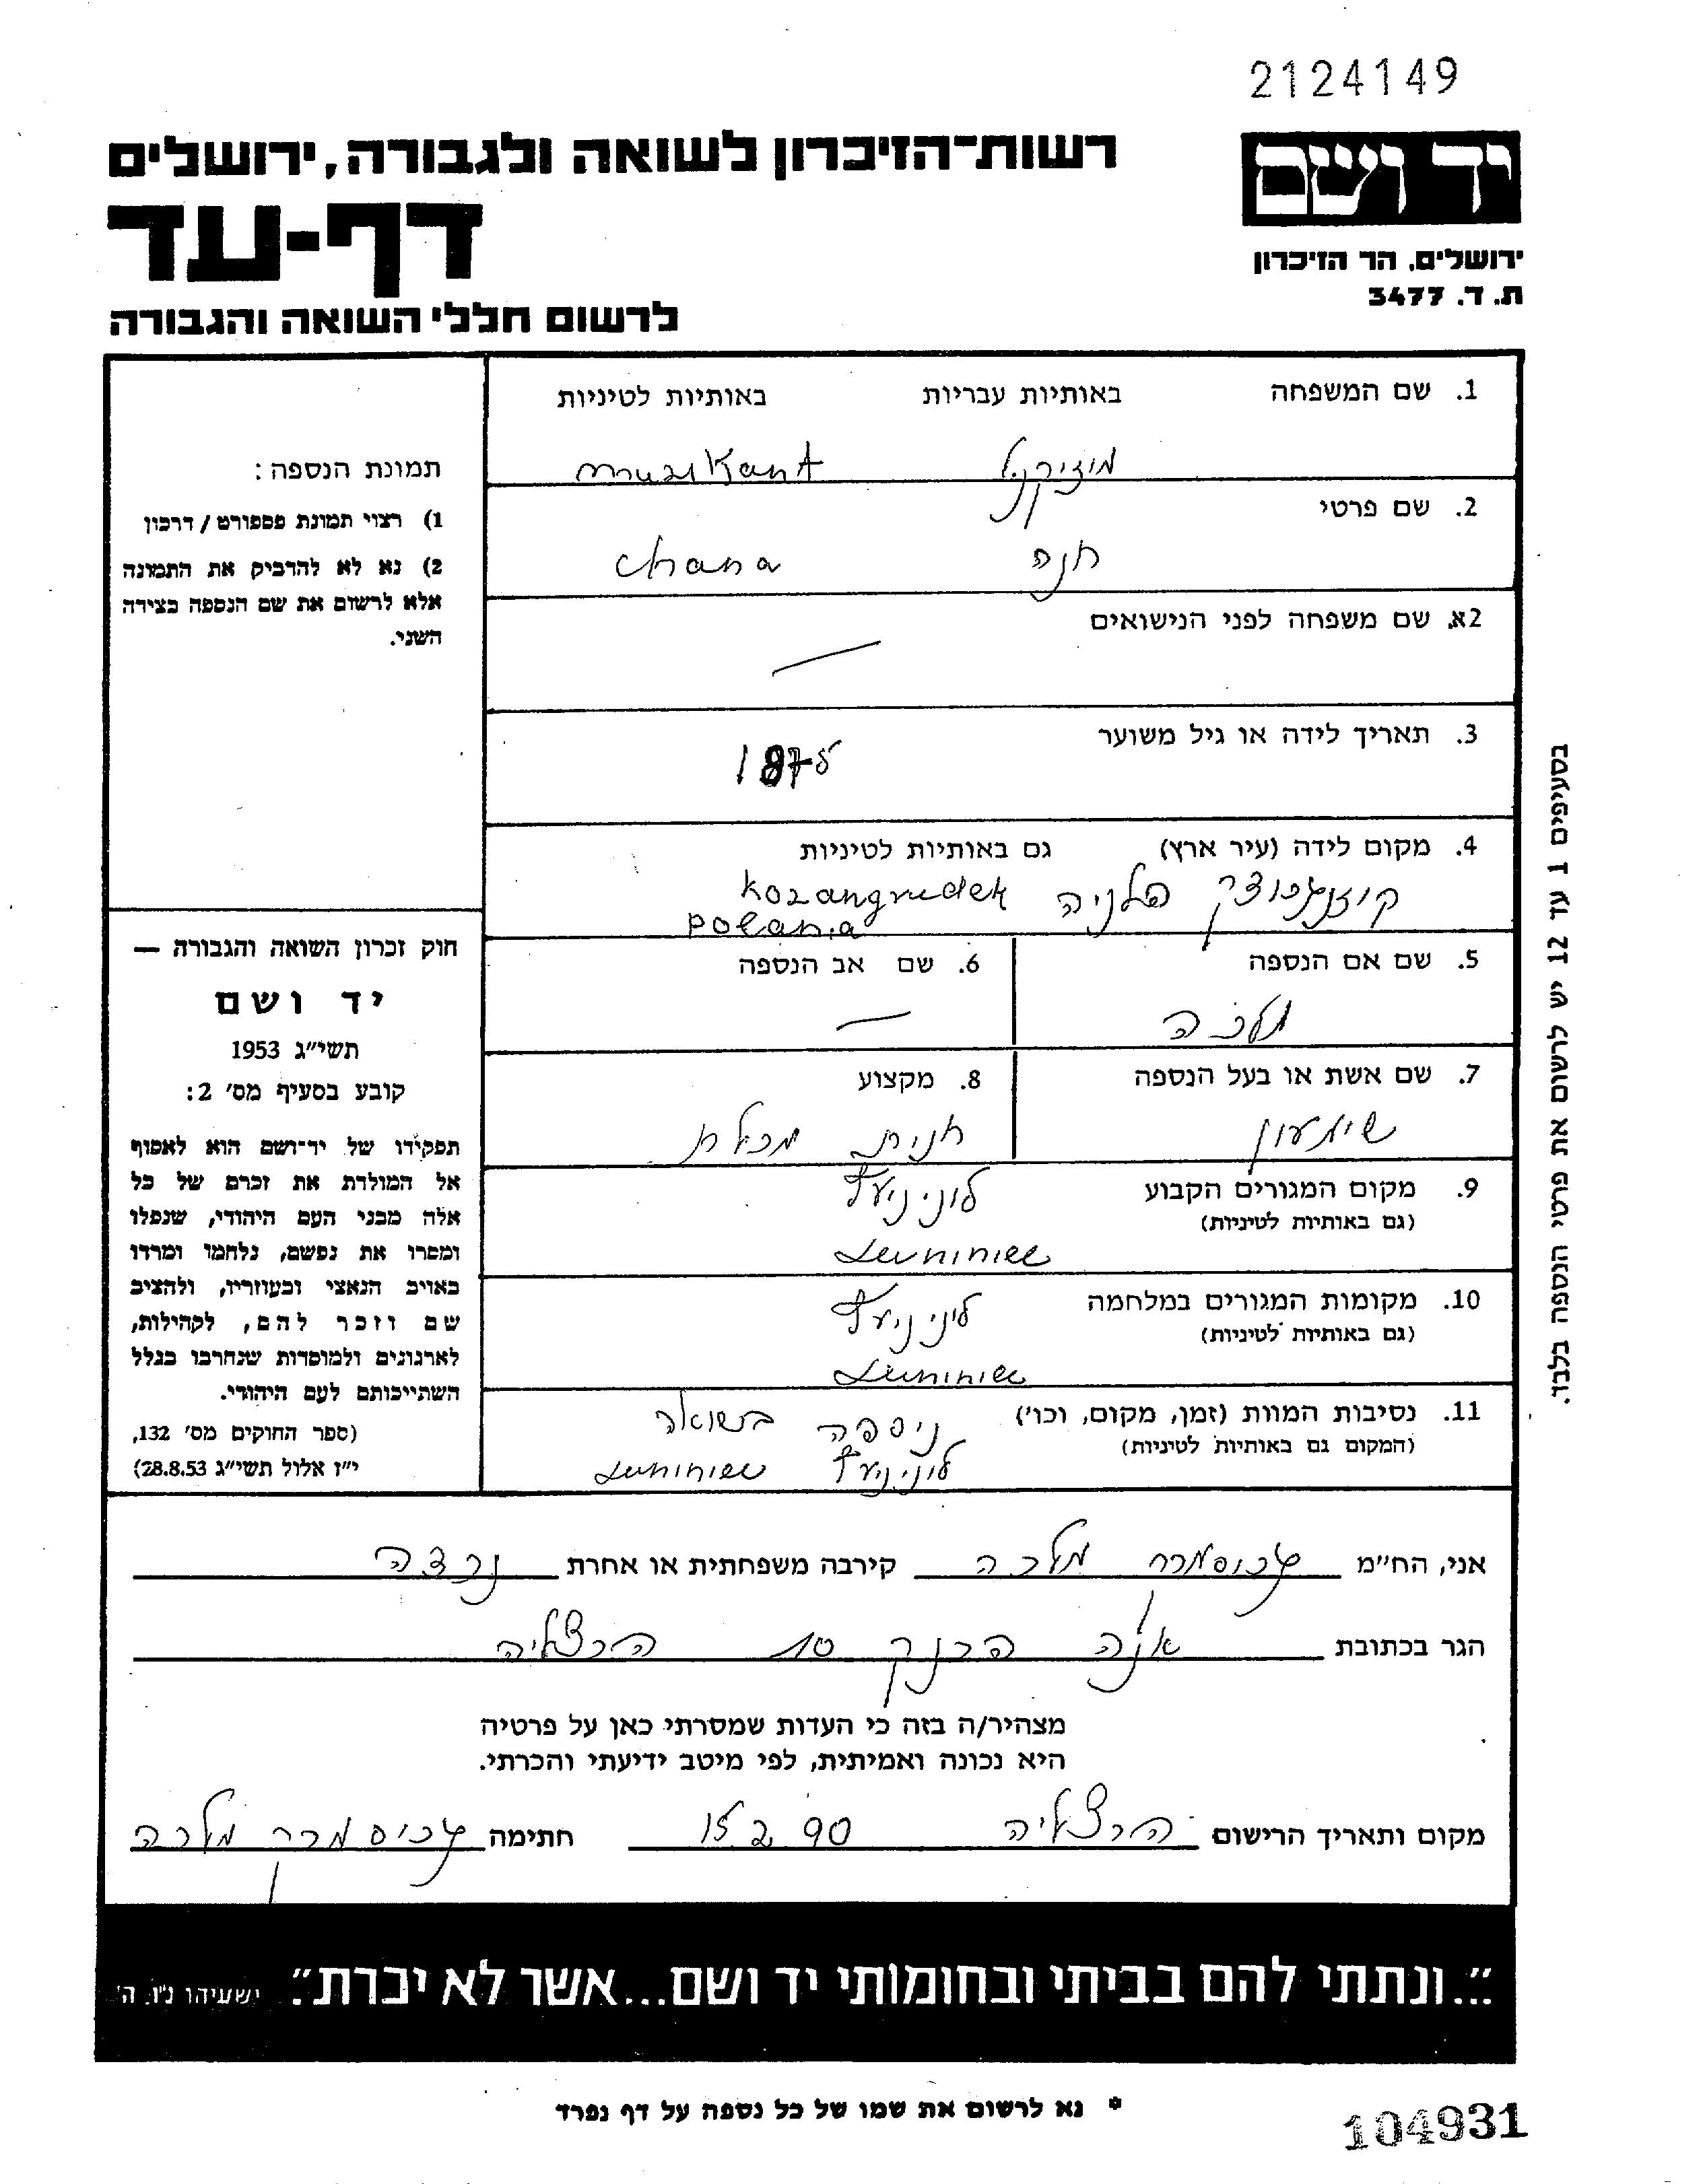 2124149
יד ושם
רשות־הזיכרון לשואה ולגבורה, ירושלים
דף-עד
ירושלים, הר הזיכרון
ת. ד. 3477
לרשום חללי השואה והגבורה
1. שם המשפחה באותיות עבריות באותיות לטיניות
מוזיקנט musikant
2. שם פרטי
חנה chana
2א. שם משפחה לפני הנישואים
—
3. תאריך לידה או גיל משוער
1875
4. מקום לידה (עיר ארץ) גם באותיות לטיניות
פלניה kozangrudek
Polania
5. שם אם הנספה
מלכה
6. שם אב הנספה
—
7. שם אשת או בעל הנספה
שימעון
8. מקצוע
חנית מכולת
9. מקום המגורים הקבוע
(גם באותיות לטיניות)
לוניניעץ
Luniniec
10. מקומות המגורים במלחמה
(גם באותיות לטיניות)
לוניניעץ
Luniniec
11. נסיבות המוות (זמן, מקום, וכו')
(המקום גם באותיות לטיניות)
ניספה בשואה
לוניניעץ Luniniec
תמונת הנספה:
1) רצוי תמונת פספורט / דרכון
2) נא לא להדביק את התמונה
אלא לרשום את שם הנספה בצידה
השני.
חוק זכרון השואה והגבורה —
יד ושם
תשי"ג 1953
קובע בסעיף מס' 2:
תפקידו של יד־ושם הוא לאסוף
אל המולדת את זכרם של כל
אלה מבני העם היהודי, שנפלו
ומסרו את נפשם, נלחמו ומרדו
באויב הנאצי ובעוזריו, ולהציב
שם וזכר להם, לקהילות,
לארגונים ולמוסדות שנחרבו בגלל
השתייכותם לעם היהודי.
(ספר החוקים מס' 132,
י"ז אלול תשי"ג 28.8.53)
בסעיפים 1 עד 12 יש לרשום את פרטי הנספה בלבד.
אני, הח"מ מלכה קירבה משפחתית או אחרת נכדה
הגר בכתובת אנה פרנק 10 הרצליה
מצהיר/ה בזה כי העדות שמסרתי כאן על פרטיה
היא נכונה ואמיתית, לפי מיטב ידיעתי והכרתי.
מקום ותאריך הרישום הרצליה 15 2 90 חתימה מלכה
"...ונתתי להם בביתי ובחומותי יד ושם...אשר לא יכרת". ישעיהו נ"ו, ה'
* נא לרשום את שמו של כל נספה על דף נפרד
104931